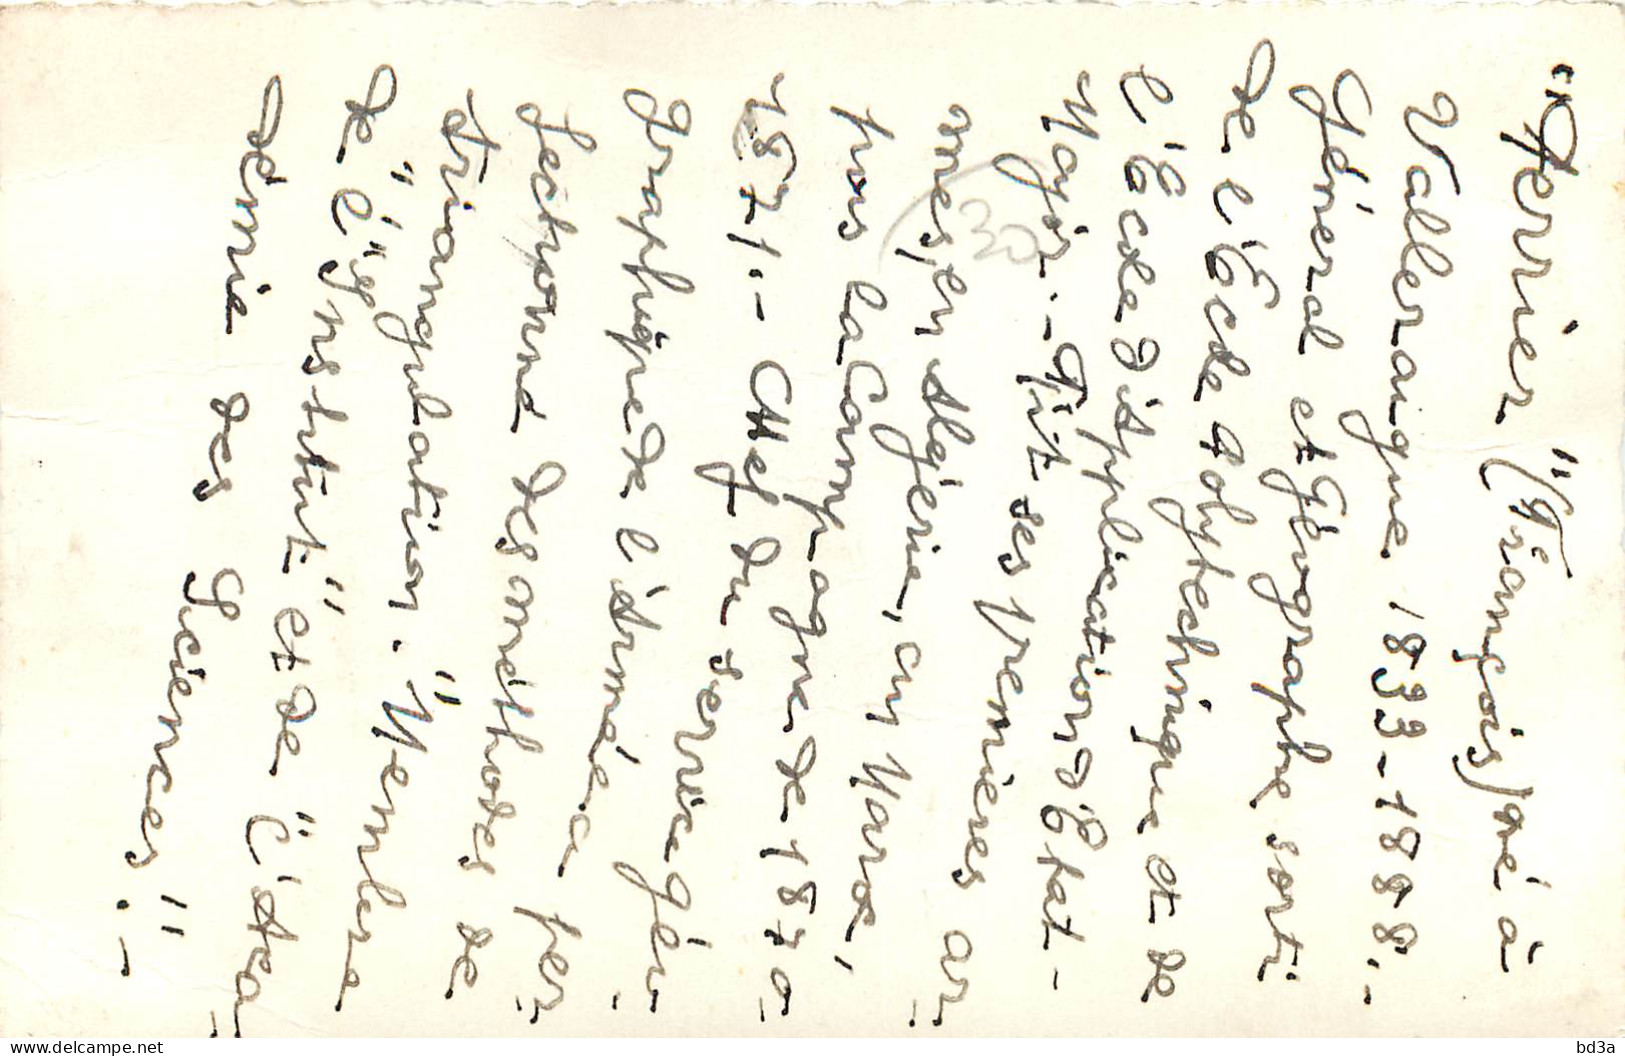 "Perrier" (François) né à
Valleraugue 1833-1888.-
Général et Géographe sorti
de l'École Polytechnique et de
l'École d'Application d'État-
Major.- Fit ses premières ar-
mes, en Algérie, au Maroc,
puis la Campagne de 1870-
1871.- Chef du service géo-
graphique de l'Armée a per-
fectionné des méthodes de
triangulation. "Membre
de l'Institut" et de "l'Aca-
démie des Sciences".-
30
delcampe.net
bd3a